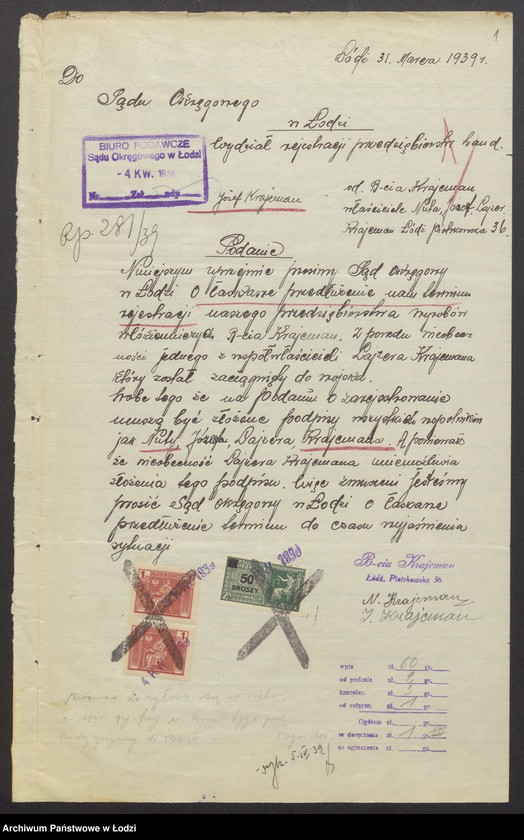 1
Łódź 31. Marca 1939 r.
Do
Sądu Okręgowego
w Łodzi
Wydział rejestracji przedsiębiorstw hand.
BIURO PODAWCZE
Sądu Okręgowego w Łodzi
- 4 KW. 1939
Nr. Zał. odp.
Józef Krajcman
od B-cia Krajcman
właściciele Nuta, Józef, Lajzer
Krajcman Łódź Piotrkowska 36.
Rp. 281/39
Podanie
Niniejszym uprzejmie prosimy Sąd Okręgowy
w Łodzi o łaskawe przedłużenie nam terminu
rejestracji naszego przedsiębiorstwa wyrobów
włókienniczych B-cia Krajcman. Z powodu nieobec-
ności jednego z współwłaścicieli Lajzera Krajcmana
który został zaciągnięty do wojska.
Wobec tego że na Podaniu o zarejestrowanie
muszą być złożone podpisy wszystkich wspólników
jak Nuty, Józefa, Lajzera Krajcmana. A ponieważ
że nieobecność Lajzera Krajcmana uniemożliwia
złożenia tego podpisu. Więc zmuszeni jesteśmy
prosić Sąd Okręgowy w Łodzi o łaskawe
przedłużenie terminu do czasu wyjaśnienia
sytuacji
1939
1939
50
GROSZY
B-cia Krajcman
Łódź, Piotrkowska 36
N. Krajcman
J. Krajcman
wpis zł. 00 gr.
od podania zł. 2 gr.
kancelar. zł. 3 gr.
od załączn. zł. 1 gr.
Ogółem zł. gr.
za doręczenie zł. 1 gr.
za ogłoszenia zł. gr.
5. IV 39.
Archiwum Państwowe w Łodzi